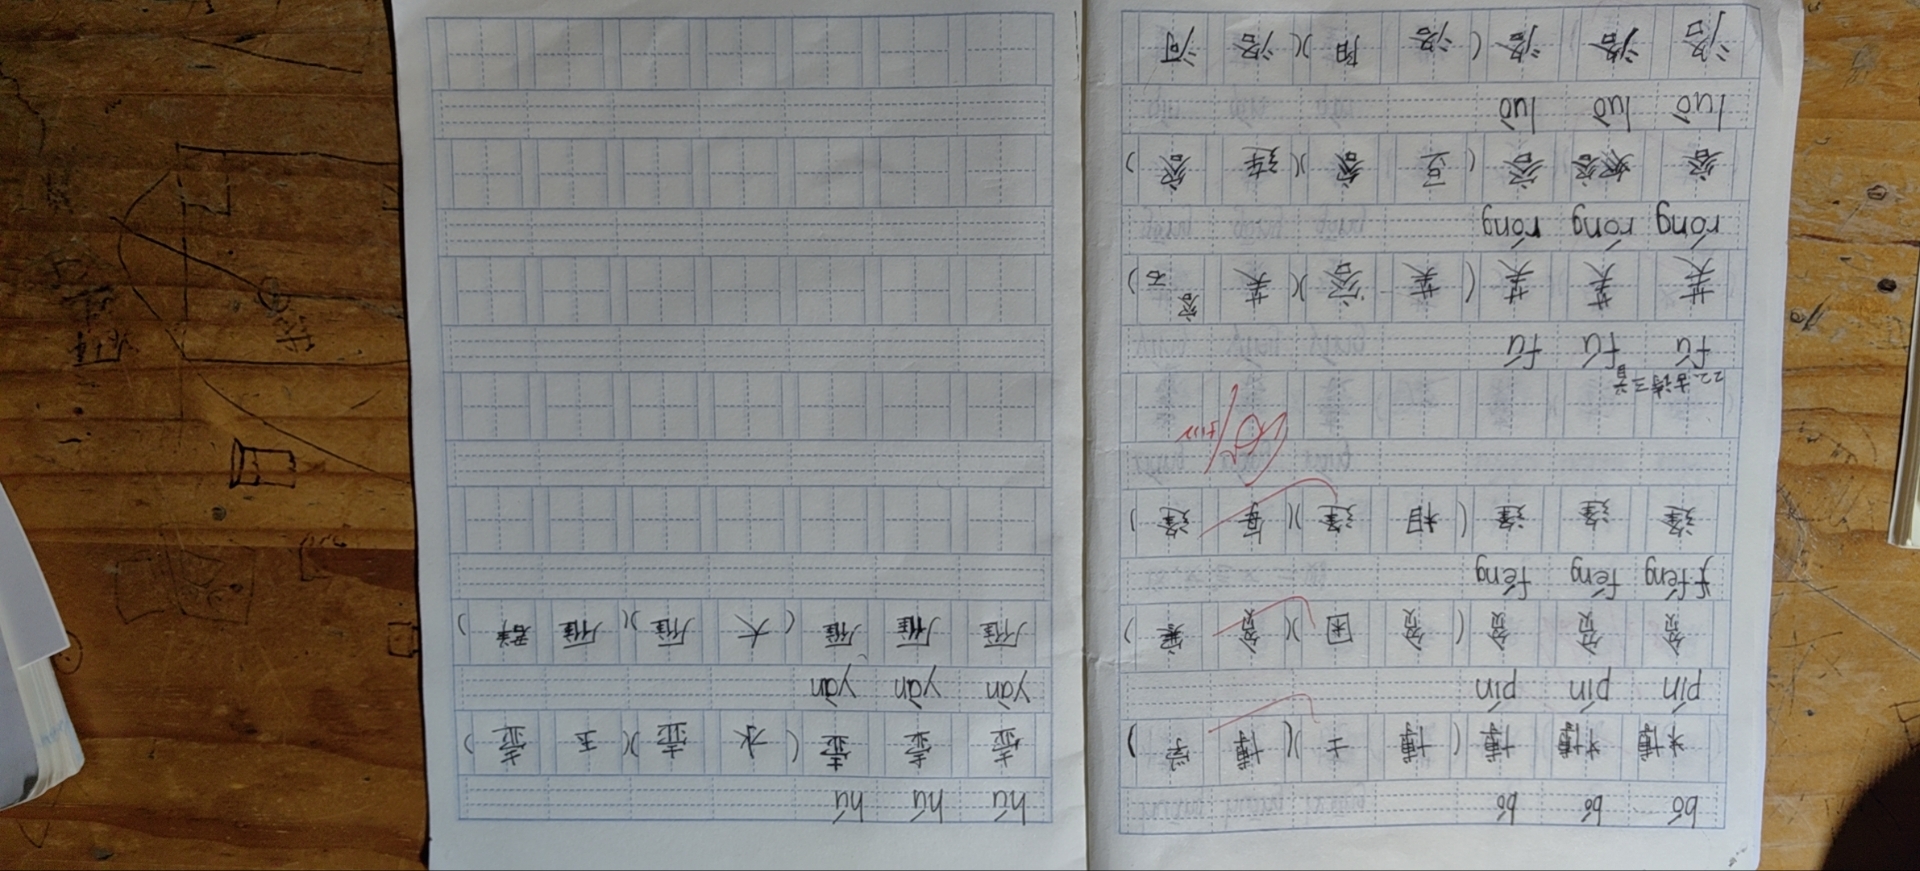 bó bó bó
博 博 博 ( 博 士 )( 博 学 )
pín pín pín
贫 贫 贫 ( 贫 困 )( 贫 寒 )
féng féng féng
逢 逢 逢 ( 相 逢 )( 每 逢 )
22 古诗三首
fú fú fú
芙 芙 芙 ( 芙 蓉 )( 芙
róng róng róng
蓉 蓉 蓉 ( 豆 蓉 )( 莲 蓉 )
luò luò luò
洛 洛 洛 ( 洛 阳 )( 洛 河
hú hú hú
壶 壶 壶 ( 水 壶 )( 玉 壶 )
yàn yàn yàn
雁 雁 雁 ( 大 雁 )( 雁 群 )